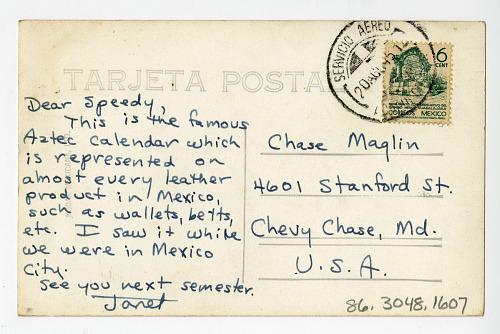 TARJETA POSTAL
SERVICIO AEREO
6
CENT
CORREOS MEXICO
Dear Speedy,
This is the famous
Aztec calendar which
is represented on
almost every leather
product in Mexico,
such as wallets, belts,
etc. I saw it while
we were in Mexico
City.
See you next semester.
Janet
Chase Maglin
4601 Stanford St.
Chevy Chase, Md.
U.S.A.
86.3048.1607